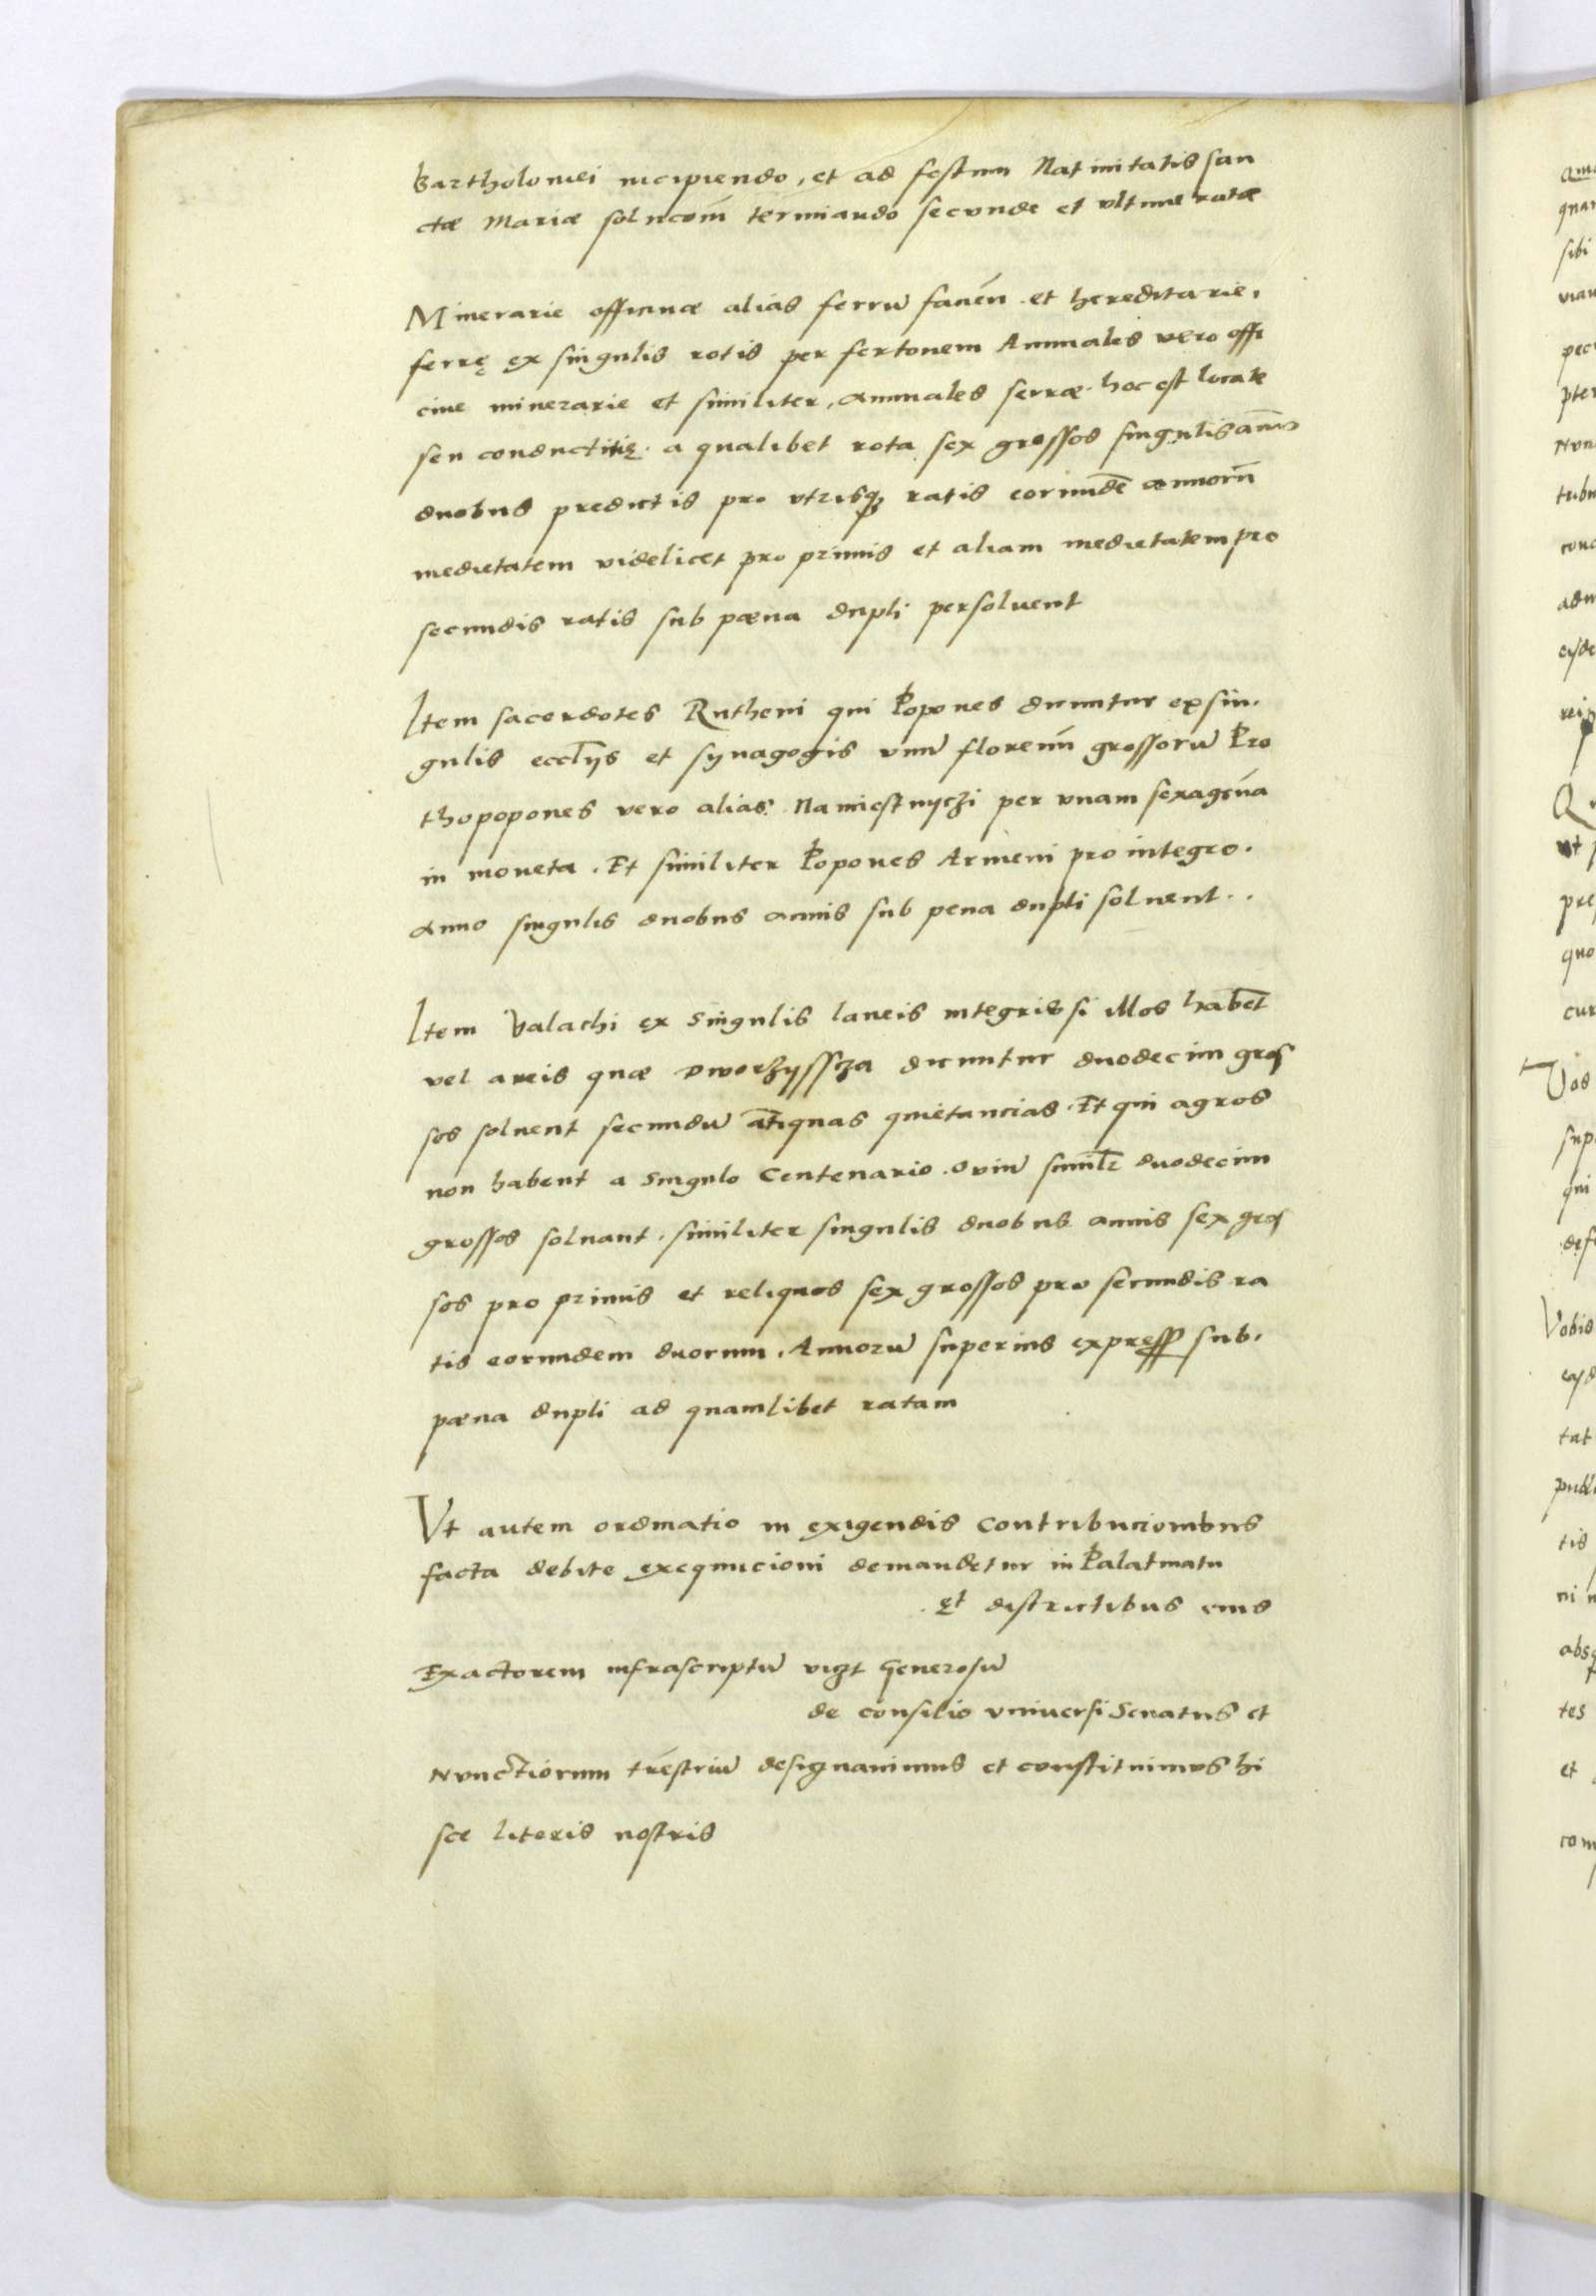 Bartholomei incipiendo, et ad festum Natiuitatis san
ctæ Mariæ solucom̄ terminando secunde et vltime ratæ
Minerarie officinæ alias ferru̅ facień et hereditarie,
serrę ex singulis rotis per fertonem Annuales vero offi
cine minerarie et similiter, annuales serræ hoc est locate
seu conductitię a qualibet rota sex grossos singulis annis
duobus predictis pro vtrisq̨ ratis eorundē annorū
medietatem videlicet pro primis et aliam medietatem pro
secundis ratis sub pæna dupli persoluent
Item sacerdotes Rutheni qui Popones dicuntur ex sin,
gulis eccl̄ijs et synagogis vnū florenū grossorū Pro
thopopones vero alias Namiestnyczi per vnam sexagenā
in moneta. Et similiter Popones Armeni pro integro.
anno singulis duobus annis sub pena dupli soluent..
Item Valachi ex singulis laneis integris si illos haben̄t
vel areis quæ Dworzysscza dicuntur duodecim gros
sos soluent secundū an̄tiquas quietancias. Et qui agros
non habent a singulo Centenario Ouiū similr̄ duodecim
grossos soluant, similiter singulis duobus annis sex gros
sos pro primis et reliquos sex grossos pro secundis ra
tis eorundem duorum, Annorū superius express sub,
pæna dupli ad quamlibet ratam
Vt autem ordinatio in exigendis contribucionibus
facta debite exequucioni demandetur in Palatinatu
et districtibus eius
Exactorem infrascriptū vizt Generosū
de consilio vniuersi Senatus et
Nunctiorum tr̄estriū designauimus et constituimus hi
sce literis nostris